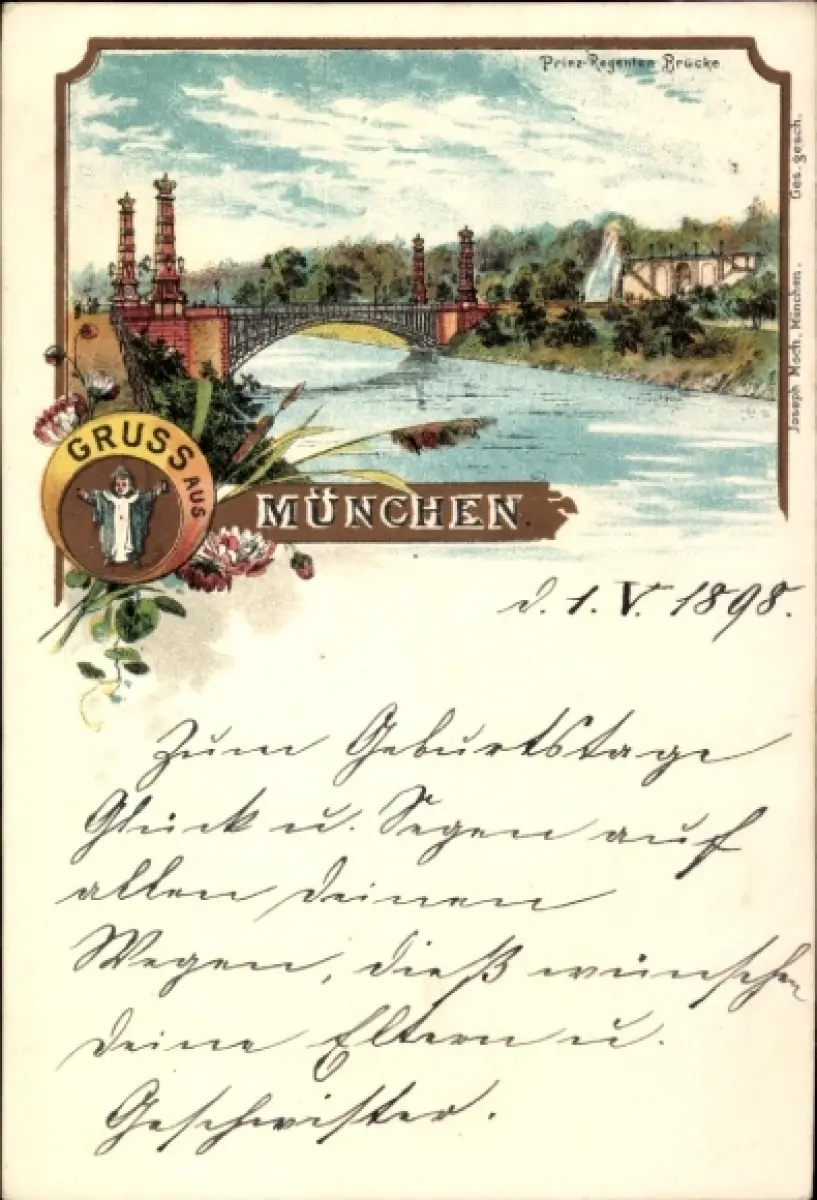 Prinz-Regenten Brücke
Joseph Moch, München. Ges. gesch.
GRUSS AUS
MÜNCHEN.
d. 1. V. 1898.
Zum Geburtstage
Glück u. Segen auf
allen Deinen
Wegen, dieß wünschen
Deine Eltern u.
Geschwister.